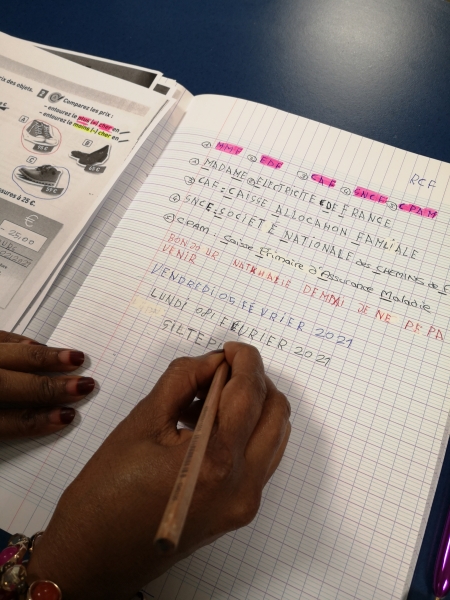 rix des objets.
2 Comparez les prix :
- entourez le plus (+) cher en
- entourez le moins (-) cher en
A
B
C
sures à 25 €.
RCF
① MME ② EDF ③ CAF ④ SNCF ⑤ CPAM
① MADAME ② ÉLECTRICITÉ EDE FRANCE
③ CAF = CAISSE ALLOCATION FAMILIALE
④ SNCF = SOCIETÉ NATIONALE des CHEMINS de F
⑤ CPAM : Caisse Primaire d'Assurance Maladie
BONJOUR NATHALIE DEMAI JE NE PEPA
VENIR
VENDREDI 05 FEVRIER 2021
LUNDI 08 FEVRIER 2021
SILTEP